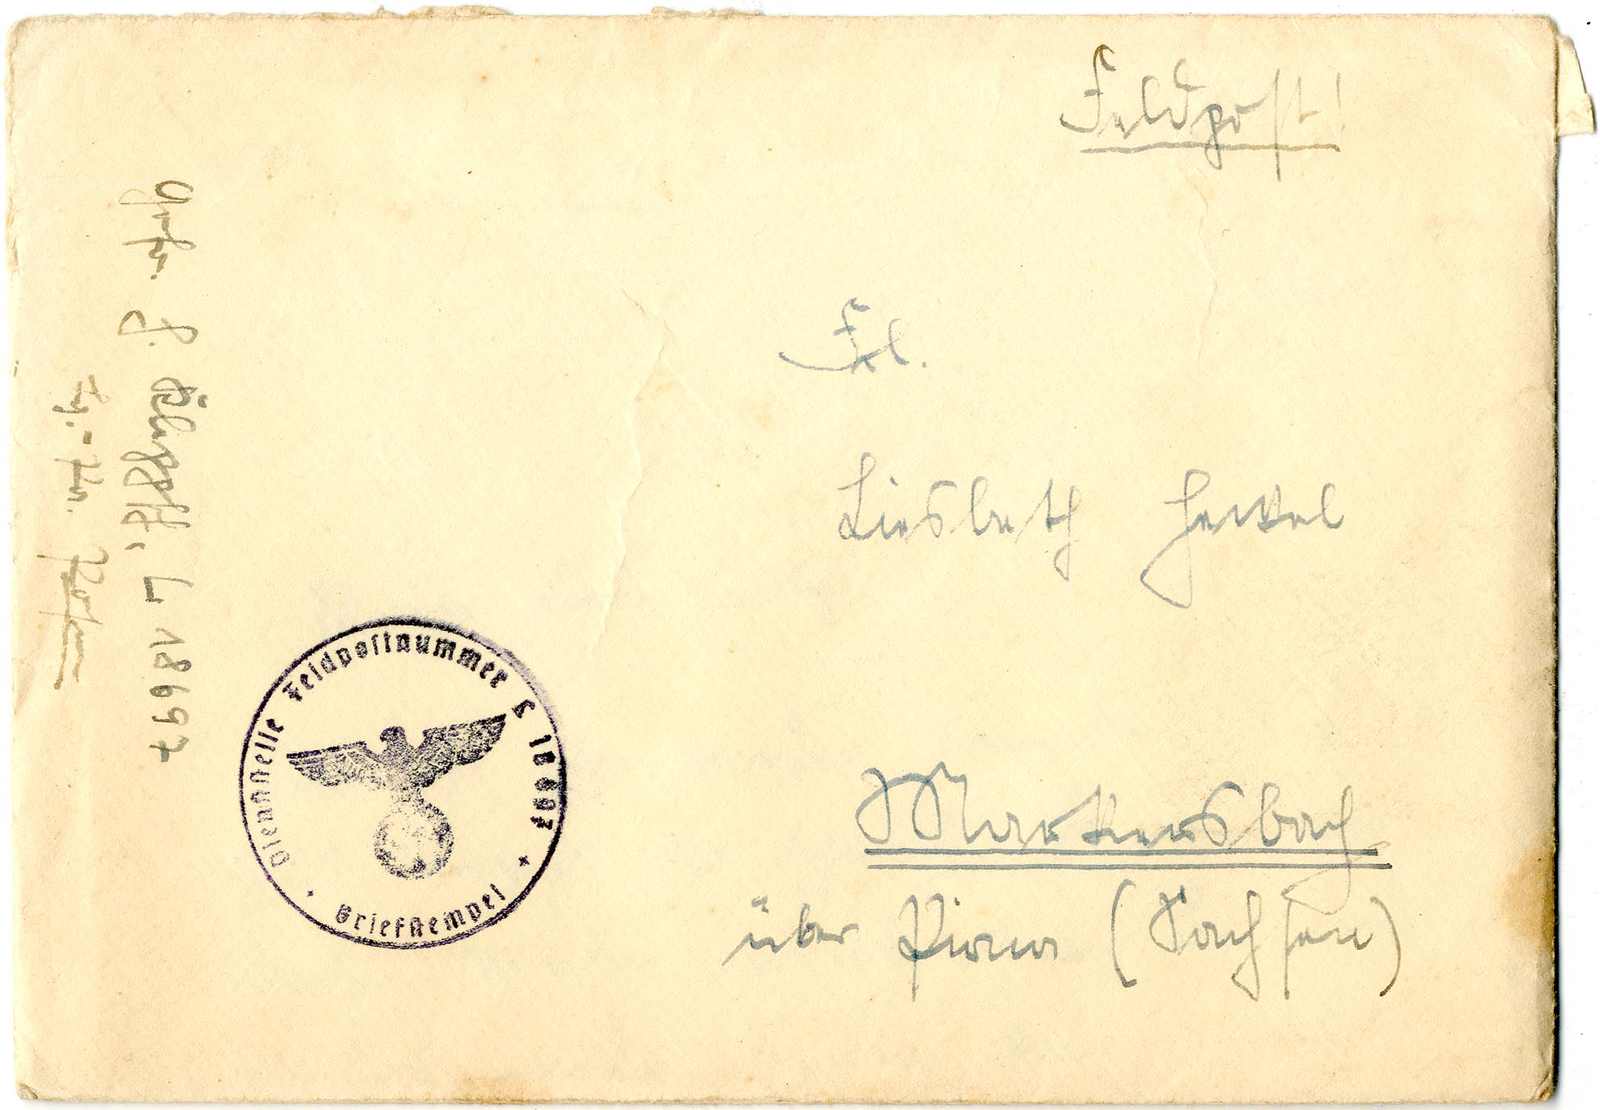 Feldpost!
Frl.
Liesbeth Henkel
Markersbach
über Pirna (Sachsen)
Gefr. J.
L 18697
Dienststelle Feldpostnummer L 18 697
Briefstempel